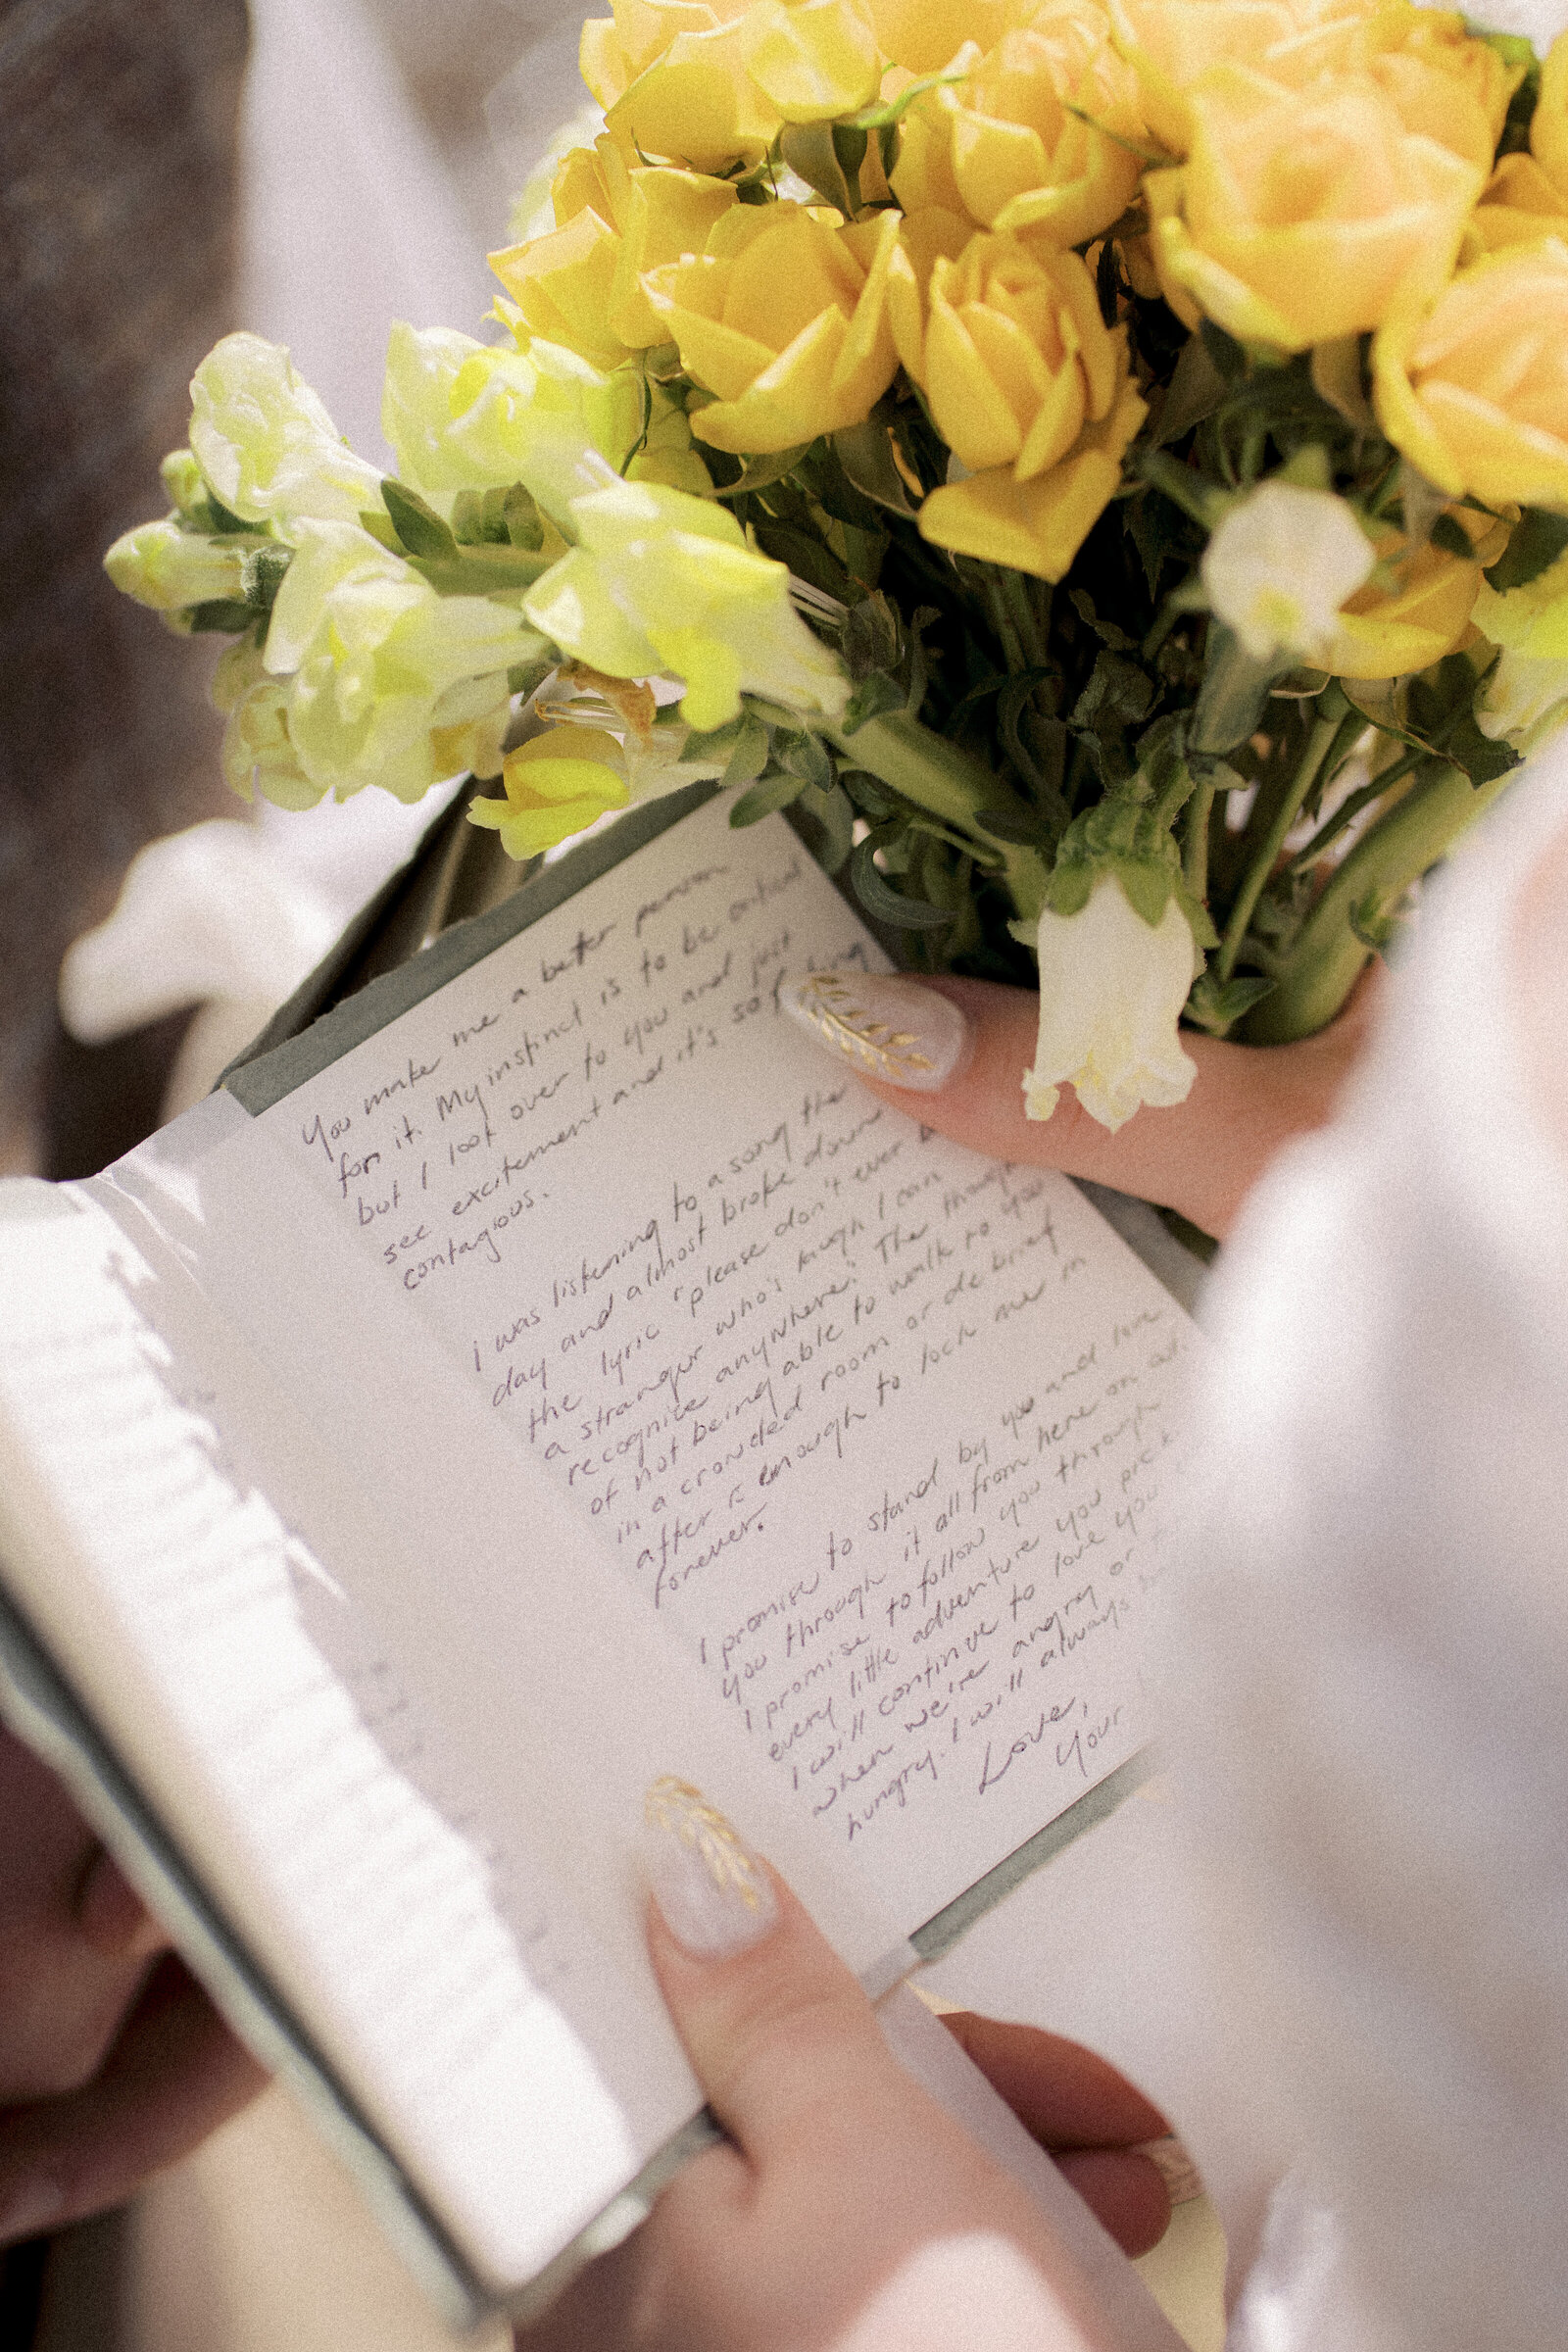 You make me a better person
for it. My instinct is to be critical
but I look over to you and just
see excitement and it's so
contagious.
I was listening to a song the
day and almost broke down
the lyric "please don't ever
a stranger who's laugh I can
recognize anywhere." The thought
of not being able to walk to you
in a crowded room or debrief
after is enough to lock me in
forever.
I promise to stand by you and
you through it all from here on
I promise to follow you through
every little adventure you pick.
I will continue to love you
when we're angry or
hungry. I will always
Love,
Your